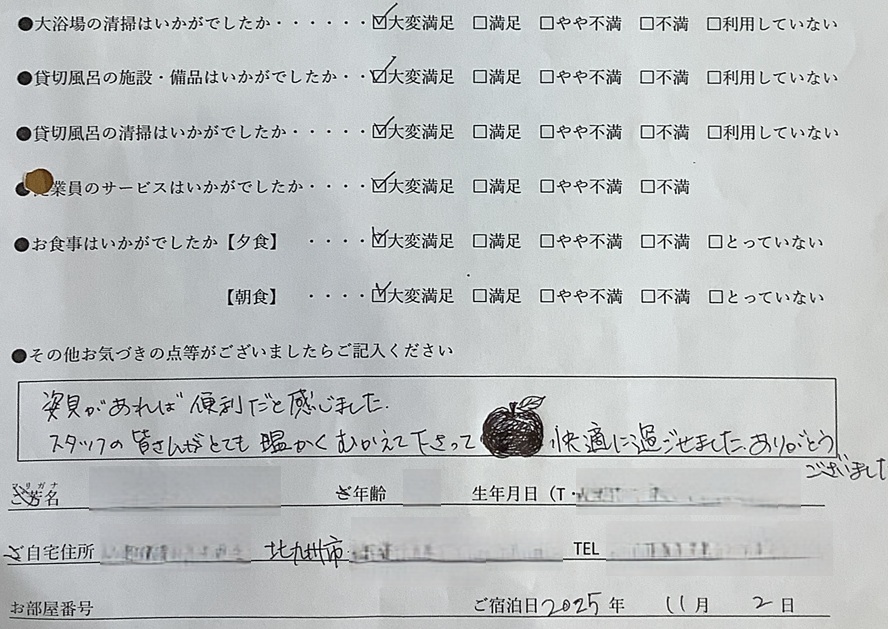 ●大浴場の清掃はいかがでしたか・・・・・・☑大変満足 □満足 □やや不満 □不満 □利用していない
●貸切風呂の施設・備品はいかがでしたか・・☑大変満足 □満足 □やや不満 □不満 □利用していない
●貸切風呂の清掃はいかがでしたか・・・・・☑大変満足 □満足 □やや不満 □不満 □利用していない
●業員のサービスはいかがでしたか・・・・☑大変満足 □満足 □やや不満 □不満
●お食事はいかがでしたか【夕食】 ・・・・☑大変満足 □満足 □やや不満 □不満 □とっていない
【朝食】 ・・・・☑大変満足 □満足 □やや不満 □不満 □とっていない
●その他お気づきの点等がございましたらご記入ください
があれば便利だと感じました.
スタッフの皆さんがとても温かくむかえて下さって快適に過ごせました.ありがとう
ございまし
フリガナ
ご芳名 ご年齢 生年月日(T・
ご自宅住所 北九州市 TEL
お部屋番号 ご宿泊日2025年 11月 2日